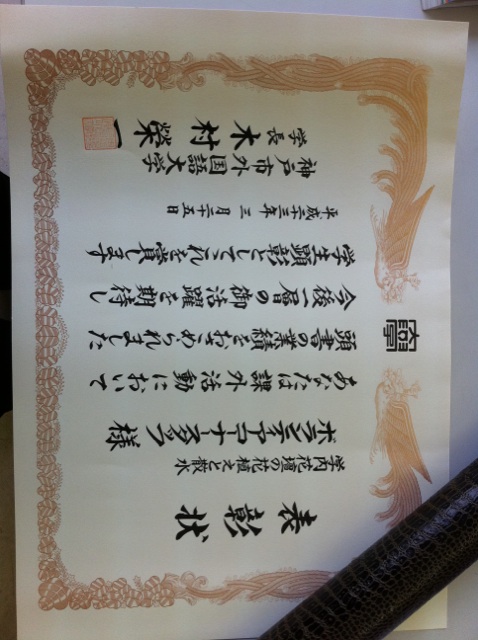 表彰状
学内花壇の花植えと散水
ボランティアコーナースタッフ 様
あなたは課外活動において
頭書の業績をおさめられました
今後一層の御活躍を期待し
学生顕彰としてこれを賞します
平成二十三年 三月二十五日
神戸市外国語大学
学長 木村榮一